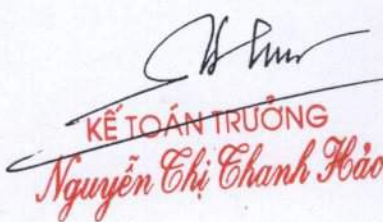 KẾ TOÁN TRƯỞNG
Nguyễn Thị Thanh Hảo